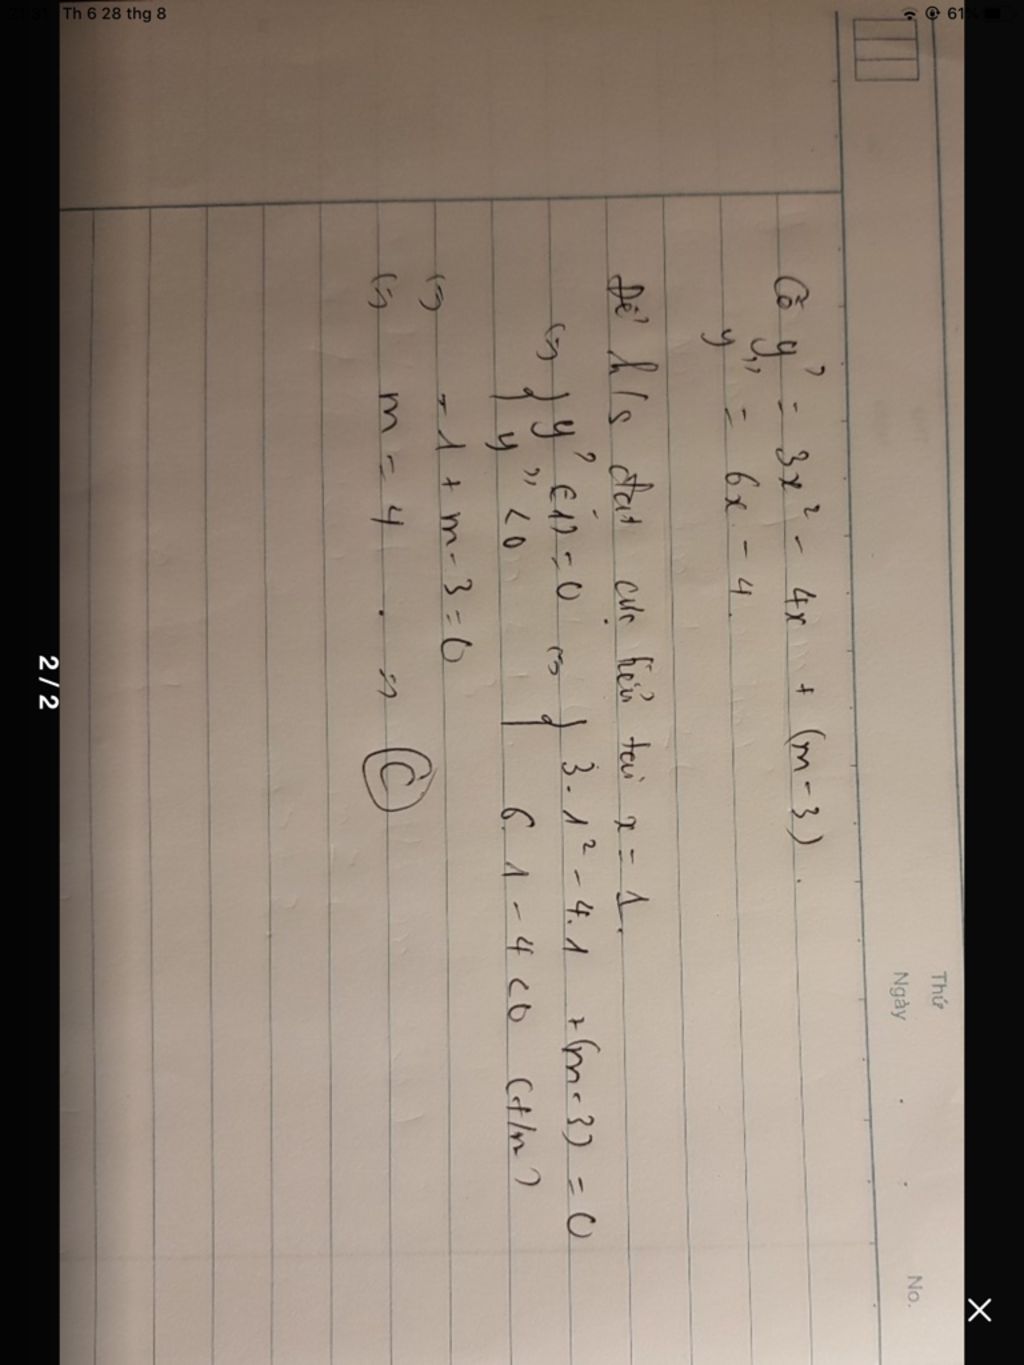 21:31 Th 6 28 thg 8
61%
Thứ
Ngày
No.
Có y' = 3x² - 4x + (m-3).
y'' = 6x - 4.
Để h/s đạt cực tiểu tại x = 1.
(=) { y'(1) = 0 (=) { 3.1² - 4.1 + (m-3) = 0
y'' < 0 6.1 - 4 < 0 (t/m)
(=) -1 + m - 3 = 0
(=) m = 4. => C
2/2